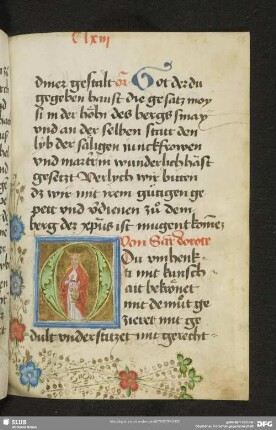 Clxiii
diner gestalt Got der du
gegeben haust die gesatz moy
si in der höhi des bergs sinay
vnd an der selben statt den
lyb der säligen iunckfrowen
vnd martrin wunderlich hást
gesetzt Verlych wir bitten
dz wir mit irem gütigen ge
pett vnd v̈dienen zu dem
berg der xp̄us ist mugent kome͂
Von Sant dorote
Du vmhenk
ti mit künsch
ait bekrönet
mit demůt ge
zieret mit ge
dult vnderstützet mit gerecht
SLUB
DFG